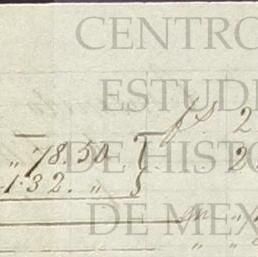 CENTRO
ESTUDI
fs. 2
" 78.50
DE HISTO
1.32. "
DE MEX